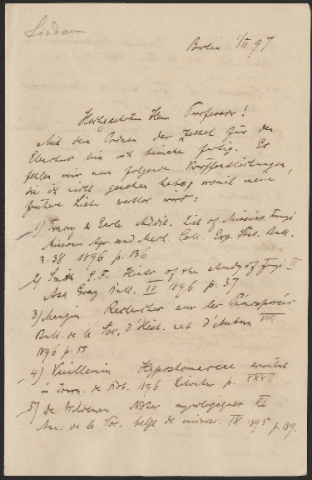 Lindau
Berlin 1/II 97
Hochgeehrter Herr Professor!
Mit dem Ordnen der Zettel für den
Elenchus bin ich beinahe fertig. Es
fehlen mir nun folgende Veröffentlichungen,
die ich nicht gesehen habe, womit meine
frühere Liste wertlos wird:
1) Tracy u. Earle List of Mississ. Fungi
Agr. and Mech. Coll. Exp. Stat. Bull.
n. 38 1896 p. 136
2) Smith E.F. of the study of Fungi II
Asa Gray Bull. IV 1896 p. 37
3) Mangin Recherches sur les
Bull. de la Soc. d'Hist. nat. d'Autun VIII
1896 p. 55
4) Vuillemin Hypostomaceae
in Journ. de Bot. 1896 p. XXXII
5) De Wildeman Notes mycologiques VI
Ann. de la Soc. belge de microsc. IX 1895 p. 189.